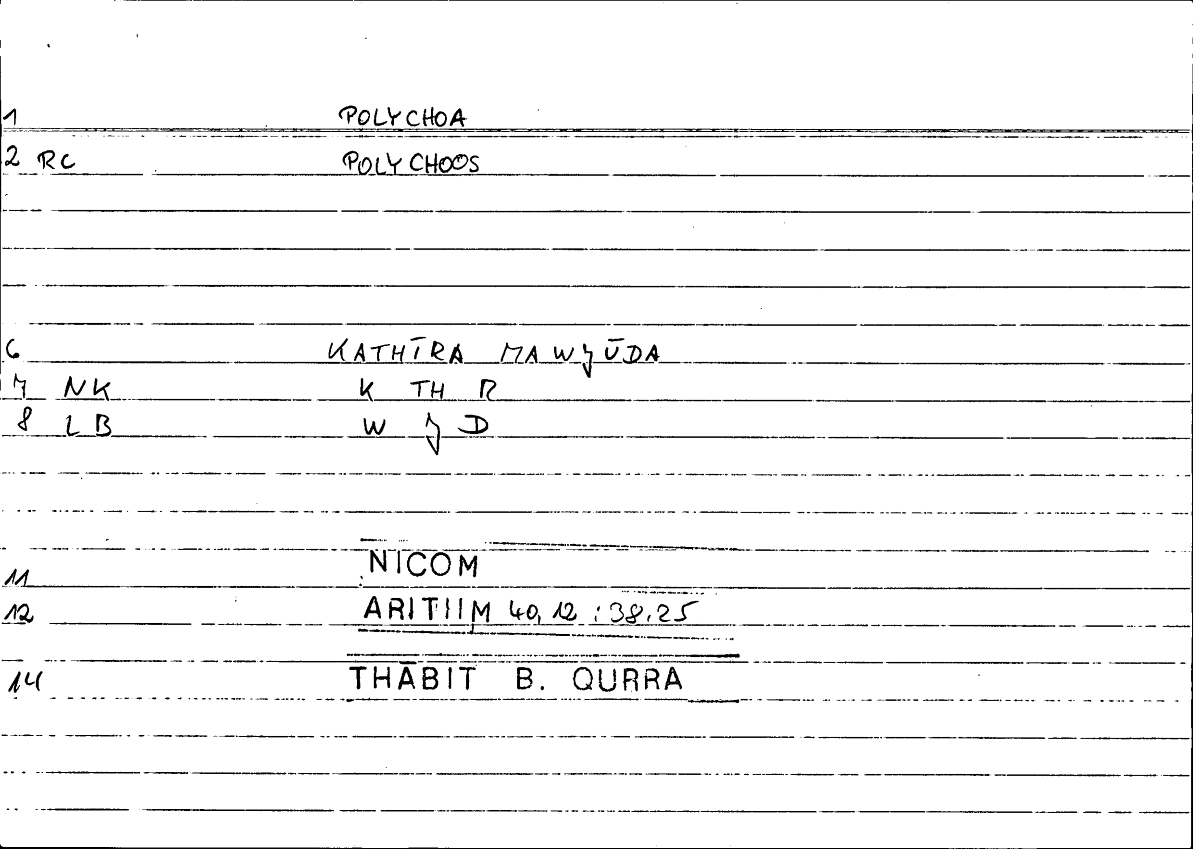 1 POLYCHOA
2 RC POLYCHOOS
6 KATHĪRA MAWJŪDA
7 NK K TH R
8 LB W J D
11 NICOM
12 ARITIIM 40,12 : 38.25
14 THĀBIT B. QURRA